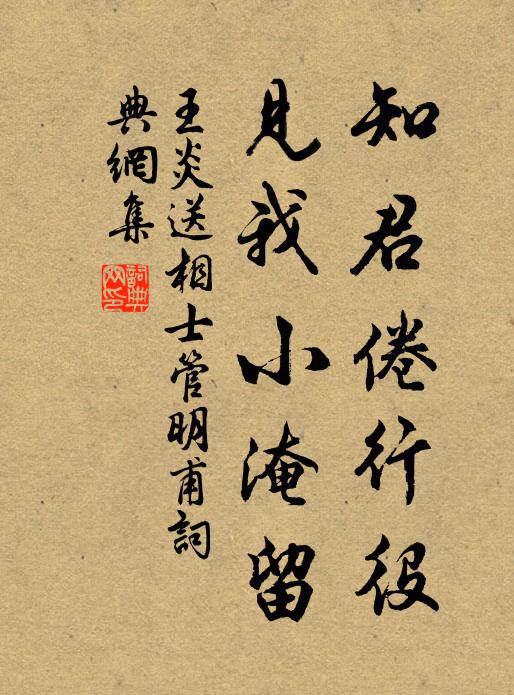 知君倦行役
見我小淹留
王炎送相士管明甫詞
典網集
詞典網印